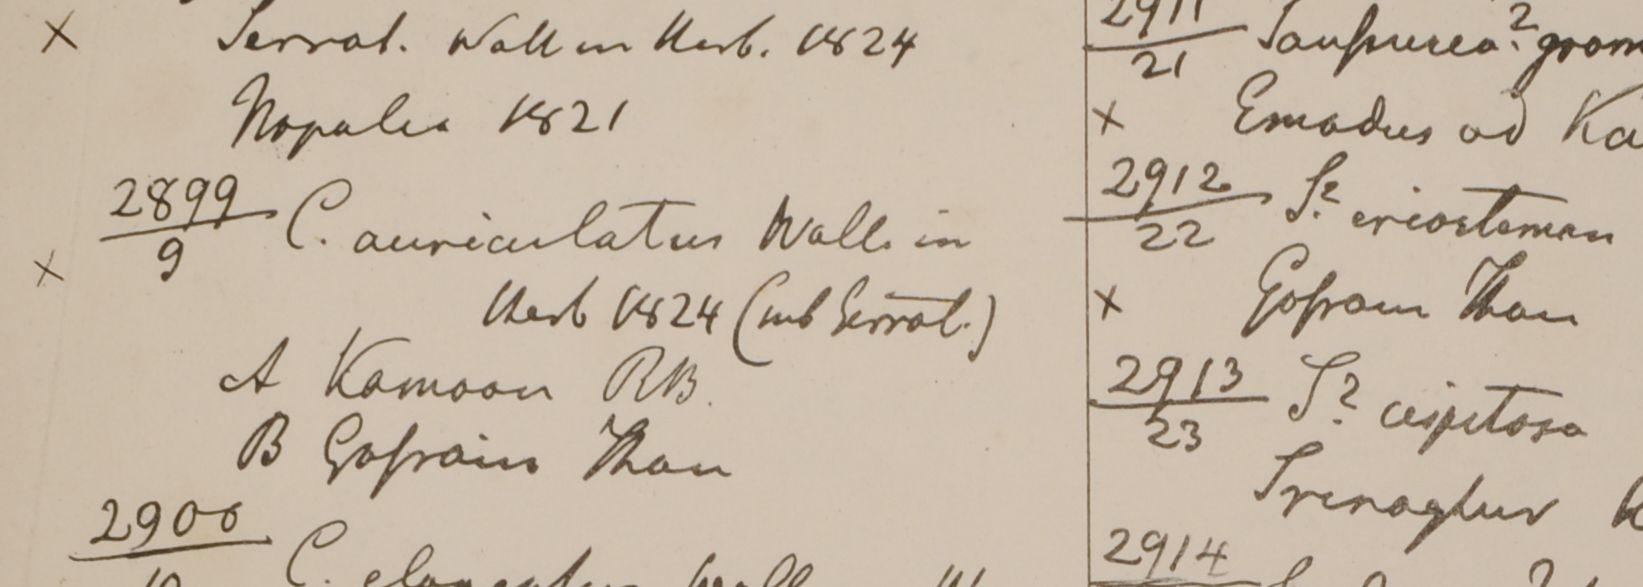 × Serrat. Wall in Herb. 1824
Nepalia 1821
2899
9
C. auriculatus Wall. in
× Herb 1824 (sub Serrat.)
A Kamoon RB.
B Gossain Than
2900
10
C. elongatus Wall
2911
21
Saussurea? gram
× Emodus ad Ka
2912
22
S? eriostemon
× Gossain Than
2913
23
S? cespitosa
Srinaghur
2914